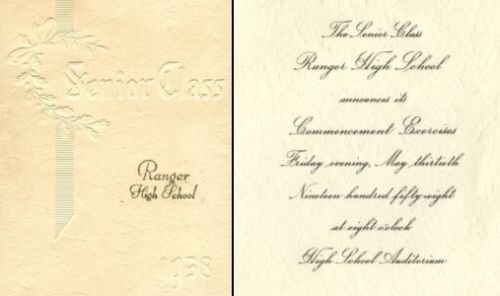 Senior Class
Ranger
High School
1958
The Senior Class
Ranger High School
announces its
Commencement Exercises
Friday evening, May thirtieth
Nineteen hundred fifty-eight
at eight o'clock
High School Auditorium